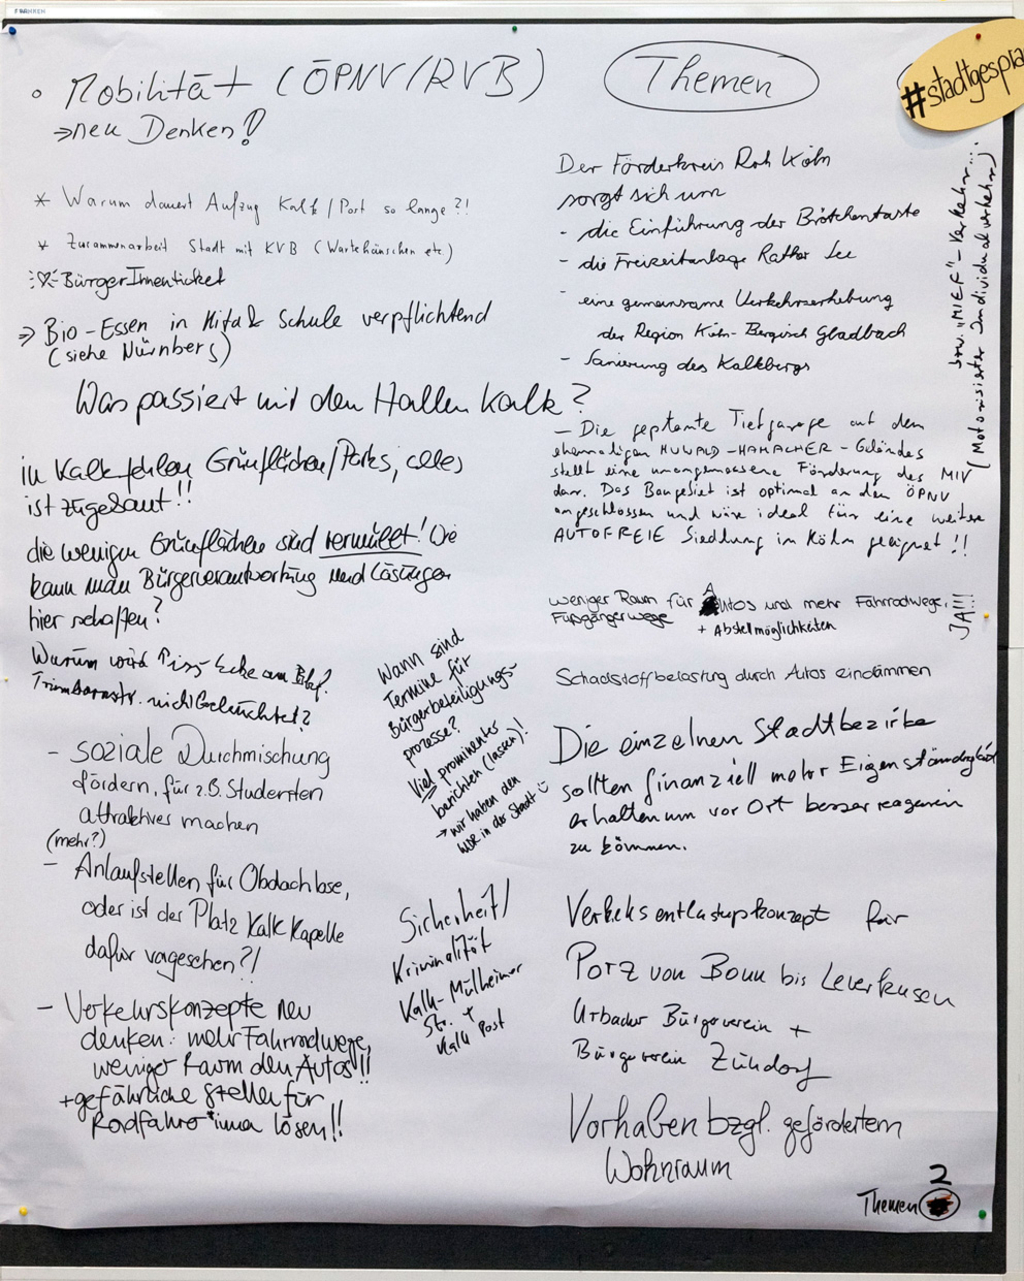 FRAHREN
#stadtgesprä
Themen
• Mobilität (ÖPNV/KVB)
⇒ neu Denken!
* Warum dauert Aufzug Kalk/Post so lange?!
* Zusammenarbeit Stadt mit KVB (Wartehäuschen etc.)
BürgerInnenticket
⇒ Bio-Essen in Kita & Schule verpflichtend
(siehe Nürnberg)
Was passiert mit den Hallen Kalk?
in Kalk fehlen Grünflächen/Parks, alles
ist zugebaut!!
die wenigen Grünflächen sind vermüllt! Wie
kann man Bürgerverantwortung und Lösungen
hier schaffen?
Warum wird Piss-Ecke am Bhf.
Trimbornstr. nicht beleuchtet?
- soziale Durchmischung
fördern, für z.B. Studenten
attraktives machen
(mehr?)
- Anlaufstellen für Obdachlose,
oder ist der Platz Kalk Kapelle
dafür vorgesehen?!
- Verkehrskonzepte neu
denken: mehr Fahrradwege,
weniger Raum den Autos!!
+ gefährliche Stellen für
Radfahrer*innen lösen!!
Wann sind
Termine für
Bürgerbeteiligungs-
prozesse?
Viel prominenter
berichten (lassen)!
→ wir haben den
WDR in der Stadt
Sicherheit/
Kriminalität
Kalk-Mülheimer
Str. +
Kalk Post
Der Förderkreis Rrh Köln
sorgt sich um
- die Einführung der Brötchentaste
- die Freizeitanlage Rather See
- eine gemeinsame Verkehrserhebung
der Region Köln-Bergisch Gladbach
- Sanierung des Kalkbergs
- Die geplante Tiefgarage auf dem
ehemaligen HUWALD-HAMACHER-Geländes
stellt eine unangemessene Förderung des MIV
dar. Das Baugebiet ist optimal an den ÖPNV
angeschlossen und wäre ideal für eine weitere
AUTOFREIE Siedlung in Köln geeignet!!
bzw. "MIEF"-Verkehr...
(Motorisierter Individualverkehr)
weniger Raum für Autos und mehr Fahrradwege,
Fußgängerwege + Abstellmöglichkeiten
JA!!!
Schadstoffbelastung durch Autos eindämmen
Die einzelnen Stadtbezirke
sollten finanziell mehr Eigenständigkeit
erhalten um vor Ort besser reagieren
zu können.
Verkehrsentlastungskonzept für
Porz von Bonn bis Leverkusen
Urbacher Bürgerverein +
Bürgerverein Zündorf
Vorhaben bzgl. gefördertem
Wohnraum
Themen 2